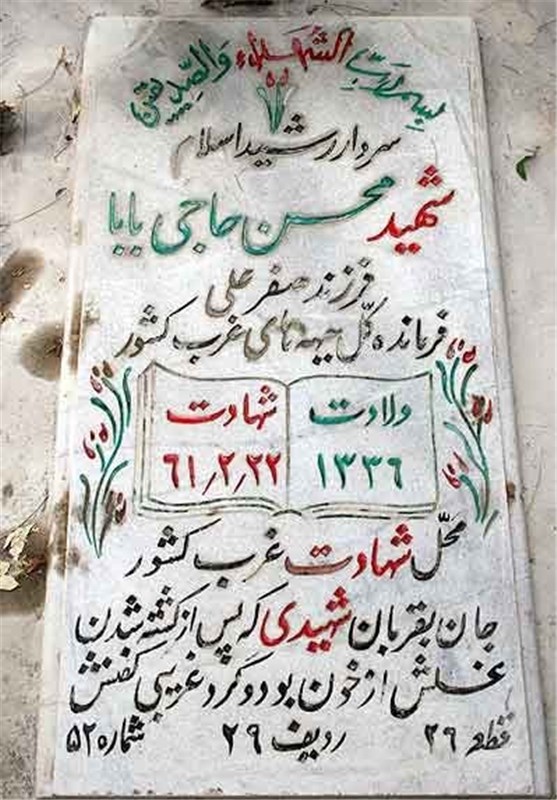 بسم رب الشهداء والصدیقین
سردار رشید اسلام
شهید محسن حاجی بابا
فرزند صفر علی
فرمانده کل جبهه های غرب کشور
ولادت شهادت
۱۳۳۶ ۶۱٫۲٫۲۲
محلّ شهادت غرب کشور
جان بقربان شهیدی که پس از کشته شدن
غسلش از خون بود و گرد غریبی کفنش
قطعه ۲۶ ردیف ۲۹ شماره ۵۲